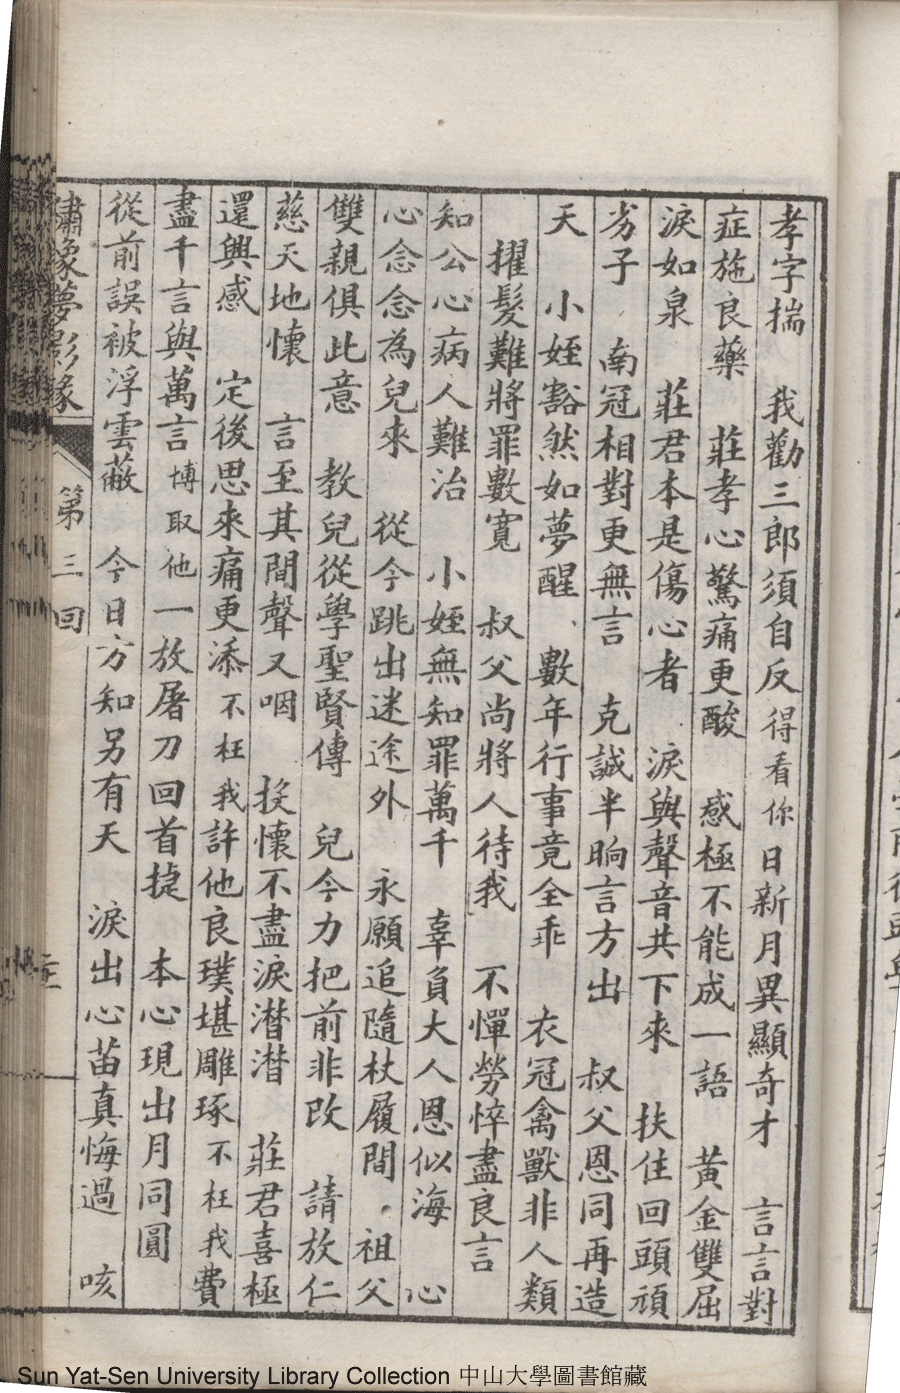 孝字揣　我勸三郎須自反得看你日新月異顯奇才　言言對
症施良藥　莊孝心驚痛更酸　感極不能成一語　黃金雙屈
淚如泉　莊君本是傷心者　淚與聲音共下來　扶住回頭頑
劣子　南冠相對更無言　克誠半晌言方出　叔父恩同再造
天　小姪豁然如夢醒　數年行事竟全乖　衣冠禽獸非人類
擢髮難將罪數寬　叔父尚將人待我　不憚勞悴盡良言
知公心病人難治　小姪無知罪萬千　辜負大人恩似海　心
心念念為兒來　從今跳出迷途外　永願追隨杖履間　祖父
雙親俱此意　教兒從學聖賢傳　兒今力把前非改　請放仁
慈天地懷　言至其間聲又咽　投懷不盡淚潸潸　莊君喜極
還興感　定後思來痛更添不枉我許他良璞堪雕琢不枉我費
盡千言與萬言博取他一放屠刀回首㨗　本心現出月同圓
從前誤被浮雲蔽　今日方知另有天　淚出心苗真悔過　咳
繡像夢影緣　第三回